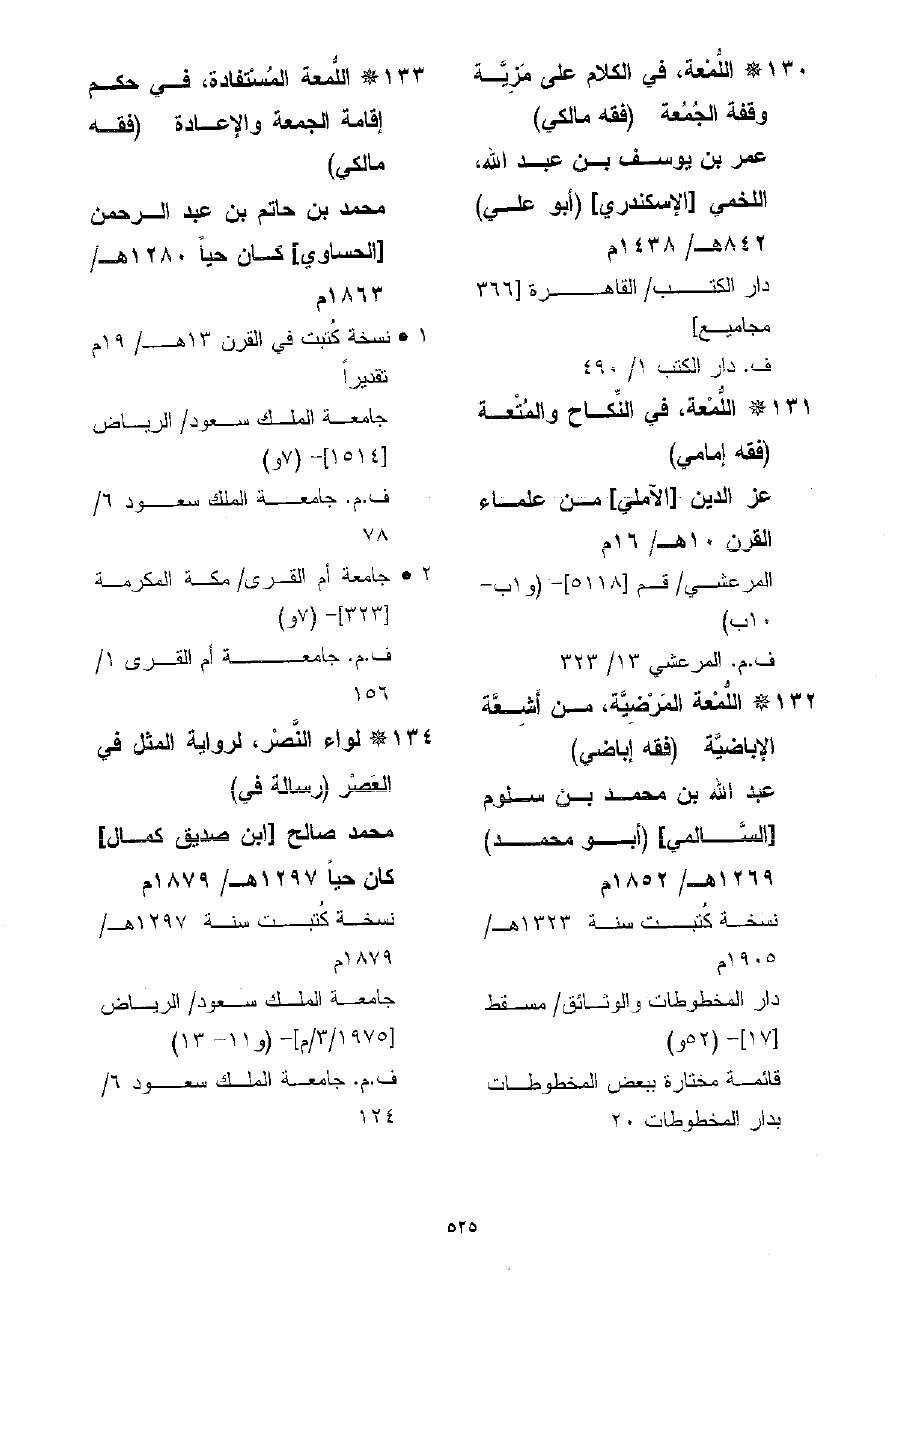 ١٣٠ * اللُّمْعة، في الكلام على مَزيَّة
وقفة الجُمُعة (فقه مالكي)
عمر بن يوسف بن عبد الله،
اللخمي [الإسكندري] (أبو علي)
٨٤٢هـ/ ١٤٣٨م
دار الكتب/ القاهرة [٣٦٦
مجاميع]
ف. دار الكتب ١/ ٤٩٠
١٣١ * اللُّمْعة، في النِّكاح والمُتْعة
(فقه إمامي)
عز الدين [الآملي] من علماء
القرن ١٠هـ/ ١٦م
المرعشي/ قم [٥١١٨]- (و١ب-
١٠ب)
ف.م. المرعشي ١٣/ ٣٢٣
١٣٢ * اللُّمْعة المَرْضيَّة، من أشِعَّة
الإباضيَّة (فقه إباضي)
عبد الله بن محمد بن سلوم
[السَّالمي] (أبو محمد)
١٢٦٩هـ/ ١٨٥٢م
نسخة كُتبت سنة ١٣٢٣هـ/
١٩٠٥م
دار المخطوطات والوثائق/ مسقط
[١٧]- (٥٢و)
قائمة مختارة ببعض المخطوطات
بدار المخطوطات ٢٠
١٣٣ * اللُّمعة المُسْتفادة، في حكم
إقامة الجمعة والإعادة (فقه
مالكي)
محمد بن حاتم بن عبد الرحمن
[الحساوي] كان حياً ١٢٨٠هـ/
١٨٦٣م
١ • نسخة كُتبت في القرن ١٣هـ/ ١٩م
تقديراً
جامعة الملك سعود/ الرياض
[١٥١٤]- (٧و)
ف.م. جامعة الملك سعود ٦/
٧٨
٢ • جامعة أم القرى/ مكة المكرمة
[٣٢٣]- (٧و)
ف.م. جامعة أم القرى ١/
١٥٦
١٣٤ * لواء النَّصْر، لرواية المثل في
العَصْر (رسالة في)
محمد صالح [ابن صديق كمال]
كان حياً ١٢٩٧هـ/ ١٨٧٩م
نسخة كُتبت سنة ١٢٩٧هـ/
١٨٧٩م
جامعة الملك سعود/ الرياض
[٣/١٩٧٥/م]- (و١١- ١٣)
ف.م. جامعة الملك سعود ٦/
١٢٤
٥٢٥